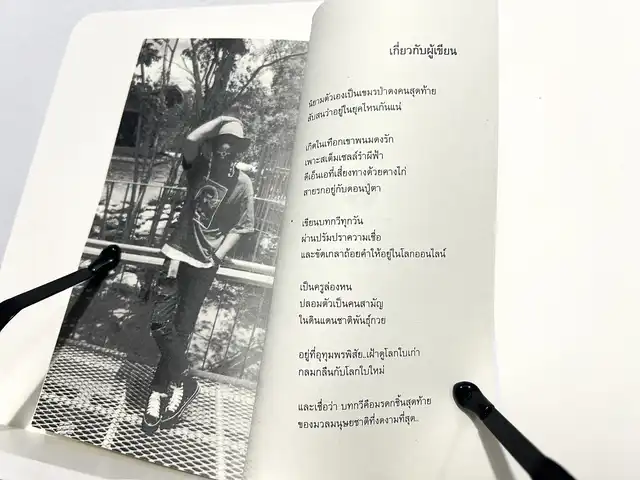 เกี่ยวกับผู้เขียน
นิยามตัวเองเป็นเขมวป่าดงคนสุดท้าย
สับสนว่าอยู่ในยุคไหนกันแน่
เกิดในเทือกเขาพนมดงรัก
เพราะสเต็มเซลล์รำผีฟ้า
ดีเอ็นเอที่เสี่ยงทางด้วยคางไก่
สายรกอยู่กับดอนปู่ตา
เขียนบทกวีทุกวัน
ผ่านปรัมปราความเชื่อ
และขัดเกลาถ้อยคำให้อยู่ในโลกออนไลน์
เป็นครูล่องหน
ปลอมตัวเป็นคนสามัญ
ในดินแดนชาติพันธุ์กวย
อยู่ที่อุทุมพรพิสัย..เฝ้าดูโลกใบเก่า
กลมกลืนกับโลกใบใหม่
และเชื่อว่า บทกวีคือมรดกชิ้นสุดท้าย
ของมวลมนุษยชาติที่งดงามที่สุด..